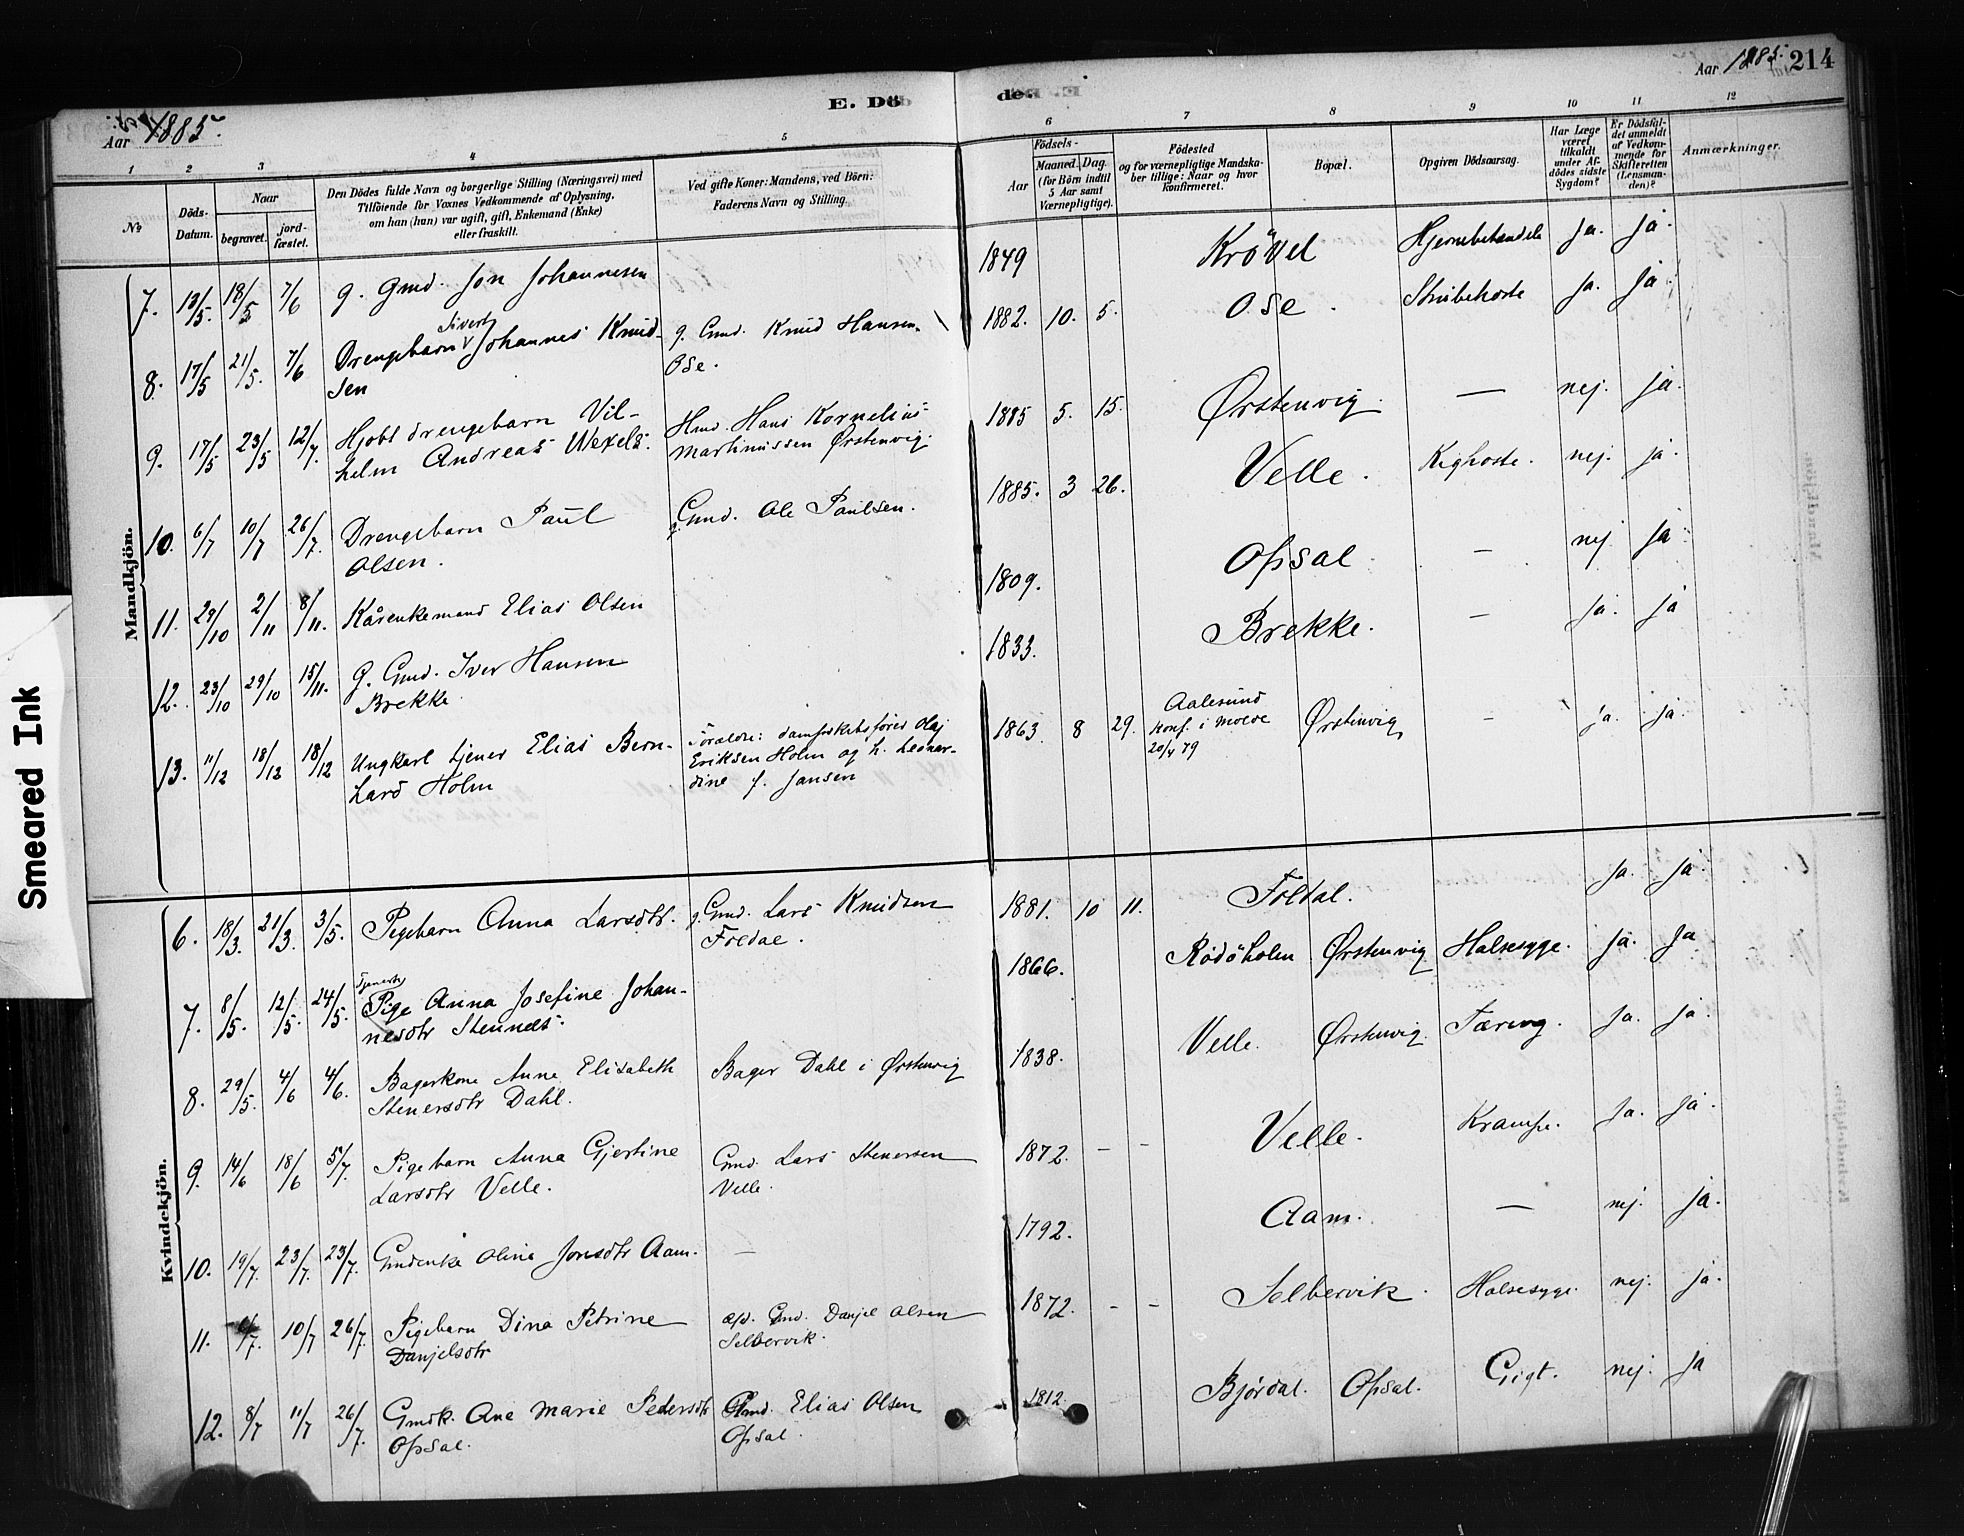 E. Dö
de.
Aar 1885.
Aar 1885. 214
1 2 3 4 5 6 7 8 9 10 11 12
№
Döds-Datum.
Naar
begravet.
jord-fæstet.
Den Dödes fulde Navn og borgerlige Stilling (Næringsvei) med
Tilföiende for Voxnes Vedkommende af Oplysning,
om han (hun) var ugift, gift, Enkemand (Enke)
eller fraskilt.
Ved gifte Koner: Mandens, ved Börn:
Faderens Navn og Stilling.
Födsels-
Aar
Maaned. Dag.
(for Börn indtil
5 Aar samt
Værnepligtige).
Födested
og for værnepligtige Mandska-
ber tillige: Naar og hvor
konfirmeret.
Bopæl.
Opgiven Dödsaarsag.
Har Læge
været
tilkaldt
under Af-
dödes sidste
Sygdom?
Er Dödsfal-
det anmeldt
af Vedkom-
mende for
Skifteretten
(Lensman-
den)?
Anmærkninger.
Mandkjön.
7. 13/5. 18/5 7/6 g. Gmd. Jon Johannesen 1849 Krövel Hjernebetændels ja. ja.
8. 17/5 21/5. 7/6 Drengebarn Sivert Johannes Knud-
sen g. Gmd. Knud Hansen
Ose. 1882. 10. 5. Ose. Strubehoste ja. ja
9. 17/5 23/5 12/7. Hjobt drengebarn Vil-
helm Andreas Wexels. Hmd. Hans Kornelius
Martinussen Ørstenvig. 1885 5. 15. Ørstenvig. — nej. ja.
10. 6/7 10/7 26/7. Drengebarn Paul
Olsen. g. Gmd. Ole Paulsen. 1885. 3 26. Velle. Kighoste. nej. ja.
11. 29/10 2/11 8/11. Kårenkemand Elias Olsen 1809. Opsal — nej. ja.
12. 23/10 29/10 15/11. g. Gmd. Iver Hansen
Brekke 1833. Brekke. — ja. ja
13. 11/12 18/12 18/12 Ungkarl tjener Elias Bern-
hard Holm Foræld: dampskibsfører Olaj
Eriksen Holm og h. Leonar-
dine f. Jansen 1863. 8 29. Aalesund
Konf. i Molde
20/4 79 Ørstenvig — ja. ja.
Kvindekjön.
6. 18/3. 21/3. 3/5. Pigebarn Anna Larsdtr. g. Gmd. Lars Knudsen
Foldal. 1881. 10 11. Foldal. ja. ja.
7. 8/5. 12/5. 24/5. Tjeneste
Pige Anna Josefine Johan-
nesdtr Stennes. 1866. Rödöholm Ørstenvig Halsesyge. ja. ja
8. 29/5. 4/6 4/6. Bagerkone Anne Elisabeth
Stenersdtr Dahl. Bager Dahl i Ørstenvig 1838. Velle. Ørstenvig. Tæring. ja. ja.
9. 14/6 18/6 5/7. Pigebarn Anna Gjertine
Larsdtr Velle. Gmd. Lars Stenersen
Velle. 1872. — — Velle. Krampe. ja. ja.
10. 19/7. 23/7. 23/7. Gmdenke Oline Jonsdtr Aam. — 1792. Aam. — nej. ja.
11. 6/7. 10/7 26/7. Pigebarn Dina Petrine
Danjelsdtr afd. Gmd. Danjel Olsen
Selbervik. 1872. — — Selbervik. Halsesyge. nej. ja.
12. 8/7 11/7 26/7. Gmdk. Ane Marie Pedersdtr
Opsal. Gmd. Elias Olsen
Opsal. 1812. Bjørdal. Opsal. Gigt. nej. ja
Smeared Ink